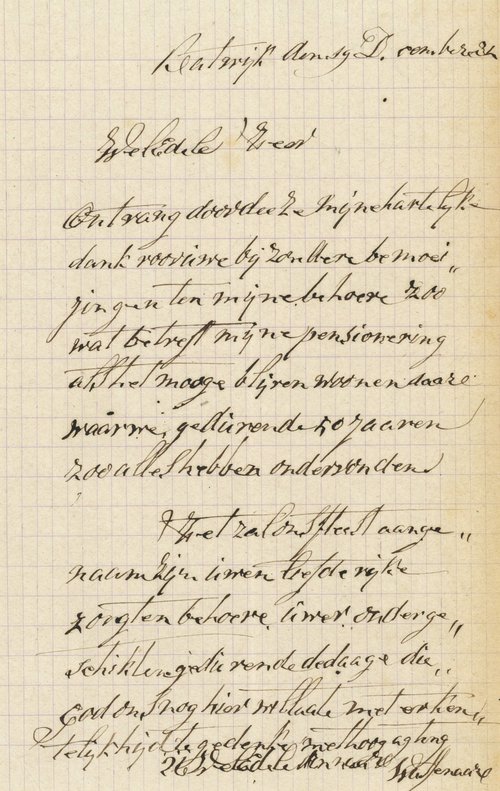 Katwijk den 19 December
WelEdele Heer
Ontvang door deeze mijne hartelijke
dank voor uwe bijzondere bemoei„
jingen ten mijne behoeve zoo
wat betreft mijne pensionering
als het mooge blijven woonen daare
waar wij gedurende 50 jaaren
zoo alles hebben ondervonden
Het zal ons steest aange„
naam zijn uwen liefderijke
zorg ten behoeve uwer onderge„
schikten gedurende de daage die„
God ons nog hier wil laate met erken„
telijkhijd te gedenke met hoogagting